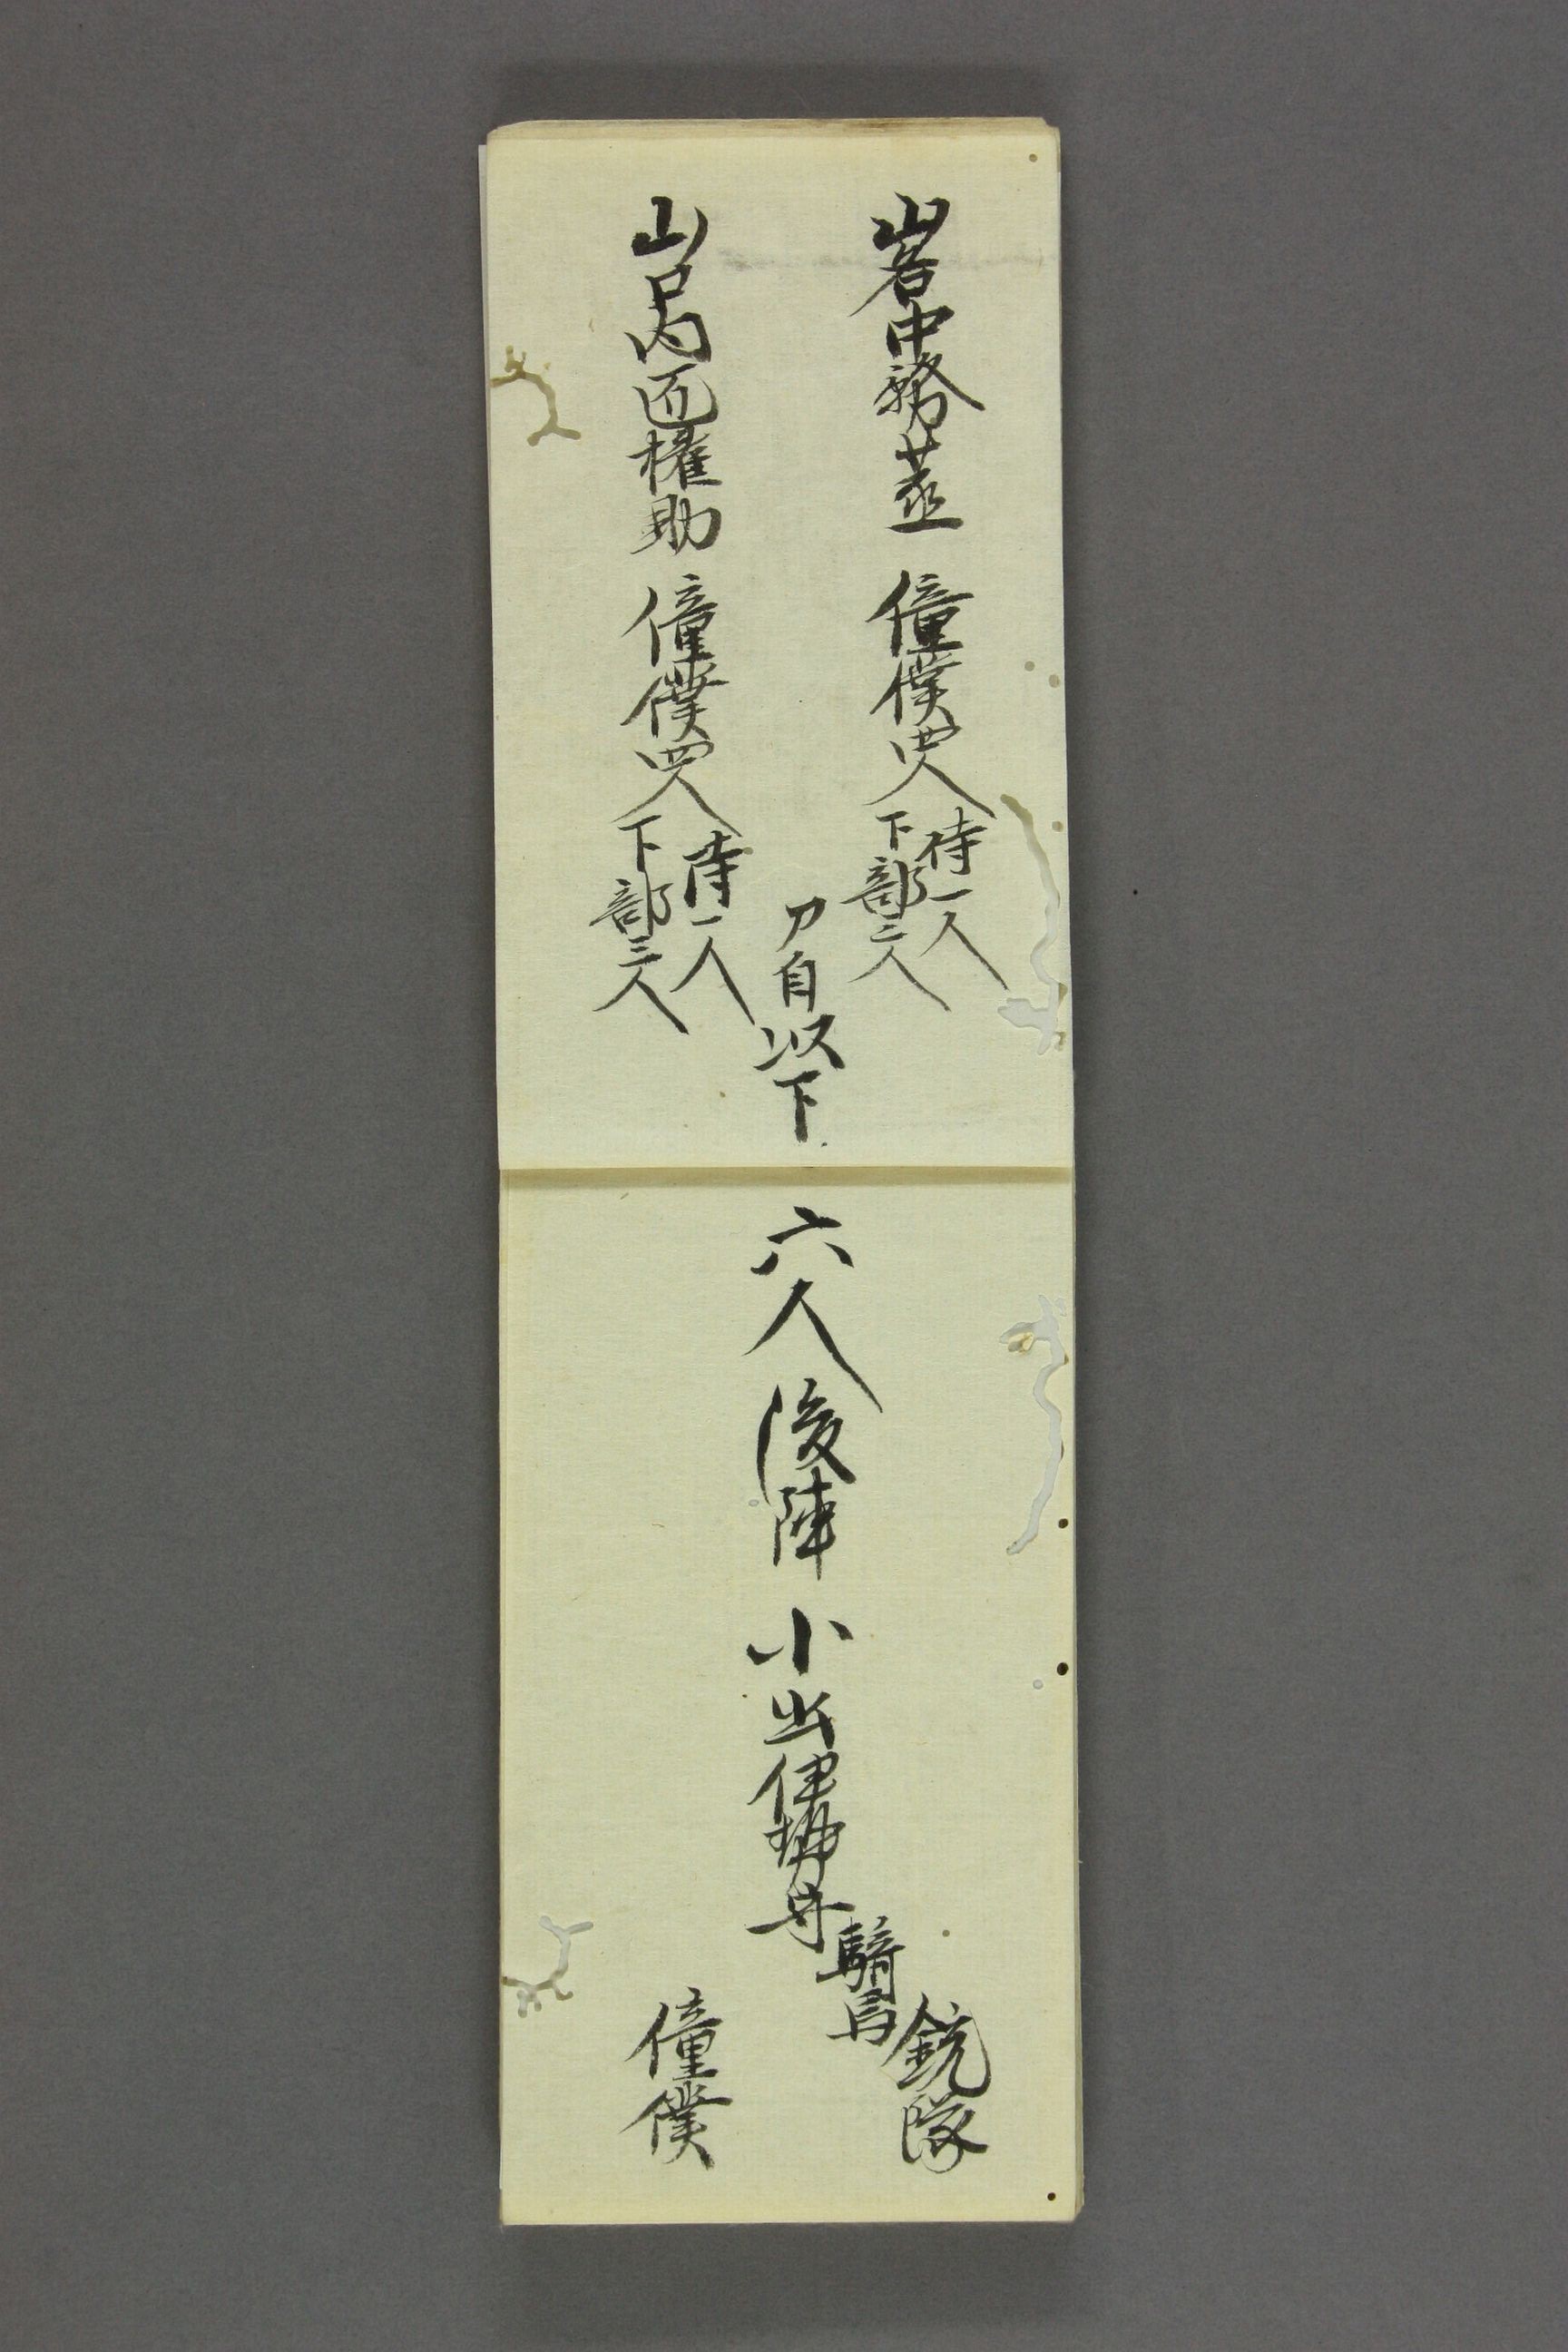 山名中務丞 僮僕四人 侍一人
下部三人
刀自以下
山口内匠権助 僮僕四人 侍一人
下部三人
六人 後陣 小出伊勢守 騎馬
銃隊
僮僕